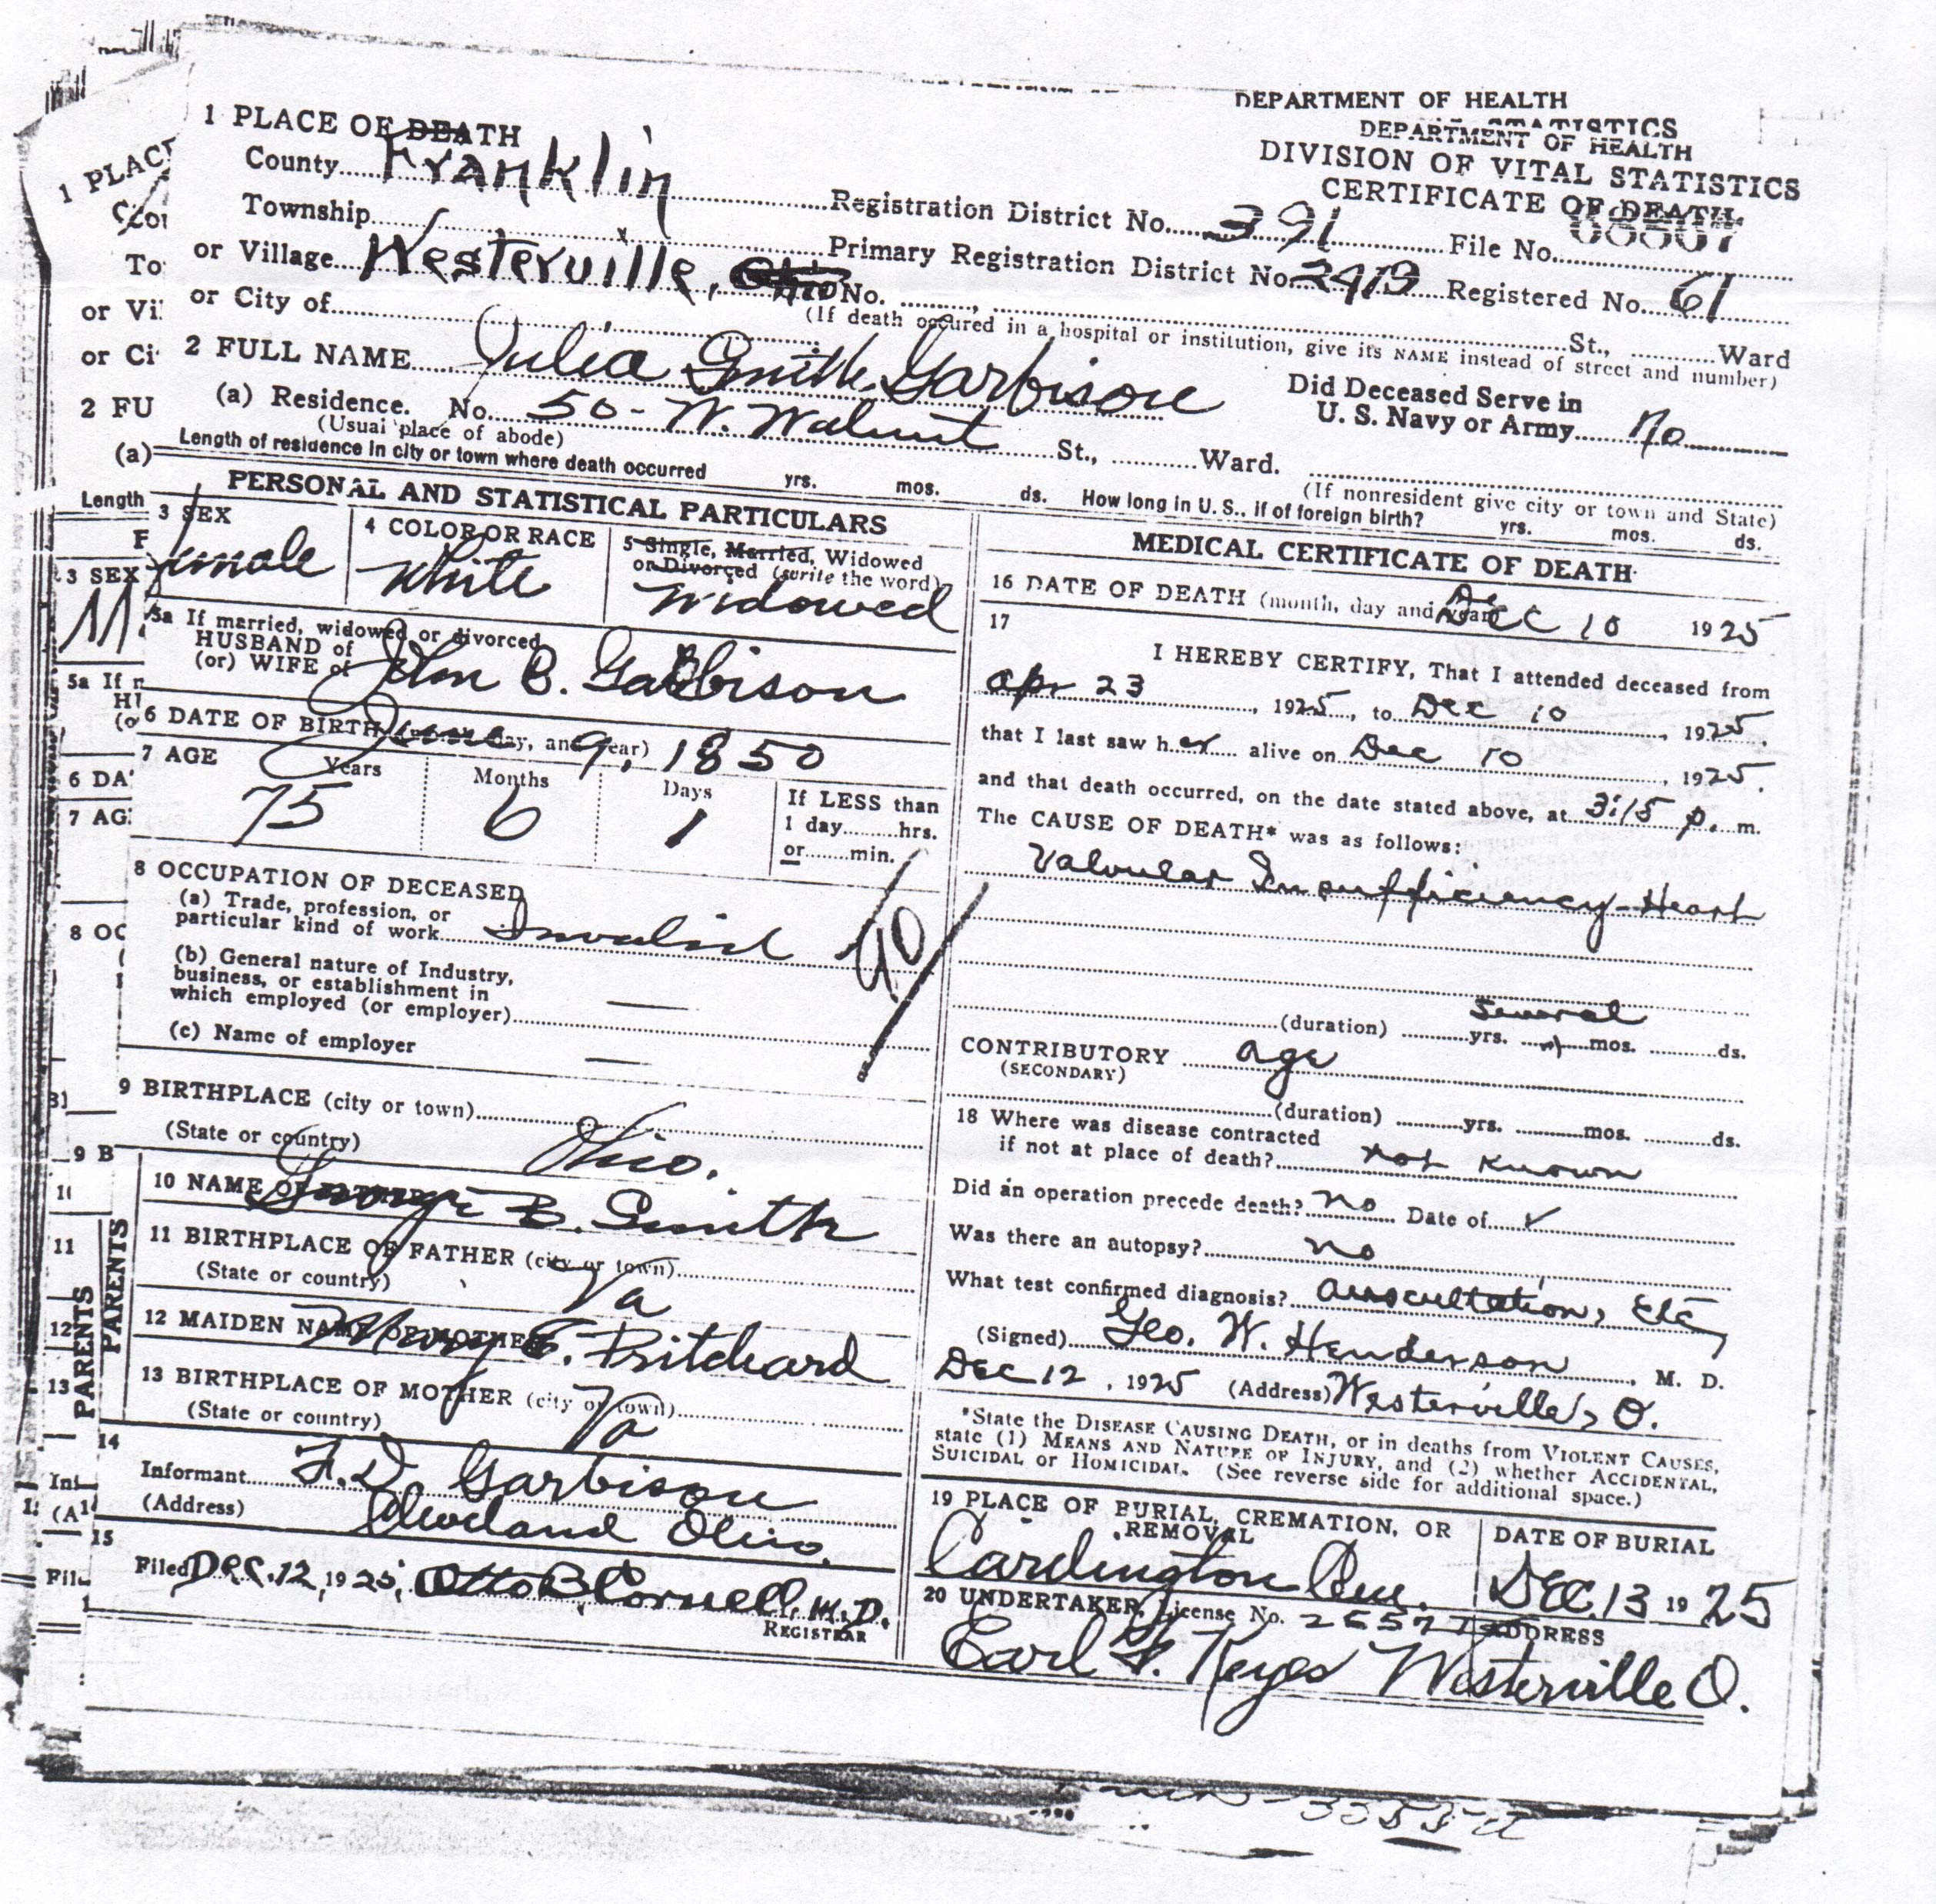 DEPARTMENT OF HEALTH
STATISTICS
DEPARTMENT OF HEALTH
DIVISION OF VITAL STATISTICS
CERTIFICATE OF DEATH
1 PLACE OF DEATH
County Franklin Registration District No. 391 File No. 68507
Township Primary Registration District No. 2419 Registered No. 61
or Village Westerville, Ohio No. St., Ward
or City of (If death occured in a hospital or institution, give its NAME instead of street and number)
2 FULL NAME Julia Smith Garbison Did Deceased Serve in
U. S. Navy or Army No
(a) Residence. No. 50 - W. Walnut St., Ward.
(Usual place of abode) (If nonresident give city or town and State)
Length of residence in city or town where death occurred yrs. mos. ds. How long in U. S., if of foreign birth? yrs. mos. ds.
PERSONAL AND STATISTICAL PARTICULARS
3 SEX
Female
4 COLOR OR RACE
White
5 Single, Married, Widowed
or Divorced (write the word)
Widowed
5a If married, widowed or divorced
HUSBAND of
(or) WIFE of John B. Garbison
6 DATE OF BIRTH (month, day, and year) June 9, 1850
7 AGE Years Months Days
75 6 1
If LESS than
1 day hrs.
or min.
8 OCCUPATION OF DECEASED
(a) Trade, profession, or
particular kind of work Invalid
90
(b) General nature of Industry,
business, or establishment in
which employed (or employer) —
(c) Name of employer —
9 BIRTHPLACE (city or town)
(State or country) Ohio.
PARENTS
10 NAME OF FATHER George B. Smith
11 BIRTHPLACE OF FATHER (city or town)
(State or country) Va
12 MAIDEN NAME OF MOTHER Mary E. Pritchard
13 BIRTHPLACE OF MOTHER (city or town)
(State or country) Va
14
Informant F. D. Garbison
(Address) Cleveland Ohio.
15
Filed Dec. 12, 1925, Otto B Cornell, M.D.
REGISTRAR
MEDICAL CERTIFICATE OF DEATH
16 DATE OF DEATH (month, day and year) Dec 10 1925
17
I HEREBY CERTIFY, That I attended deceased from
Apr 23, 1925, to Dec 10, 1925.
that I last saw her alive on Dec 10, 1925.
and that death occurred, on the date stated above, at 3:15 p. m.
The CAUSE OF DEATH* was as follows:
Valvular Insufficiency - Heart
several
(duration) yrs. mos. ds.
CONTRIBUTORY age
(SECONDARY)
(duration) yrs. mos. ds.
18 Where was disease contracted
if not at place of death? not known
Did an operation precede death? no Date of ✓
Was there an autopsy? no
What test confirmed diagnosis? auscultation, Etc
(Signed) Geo. W. Henderson, M. D.
Dec 12, 1925 (Address) Westerville, O.
*State the DISEASE CAUSING DEATH, or in deaths from VIOLENT CAUSES,
state (1) MEANS AND NATURE OF INJURY, and (2) whether ACCIDENTAL,
SUICIDAL or HOMICIDAL. (See reverse side for additional space.)
19 PLACE OF BURIAL, CREMATION, OR
REMOVAL
Cardington Cem.
DATE OF BURIAL
DEC. 13 1925
20 UNDERTAKER, License No. 2657 ADDRESS
Earl F. Keyes Westerville O.
1 PLACE
Cou
To
or Vi
or Ci
2 FU
(a)
Length
F
3 SEX
M
5a If m
6 DA
7 AG
8 OC
9 B
10
11
12
13
PARENTS
Inf
(A
Fil